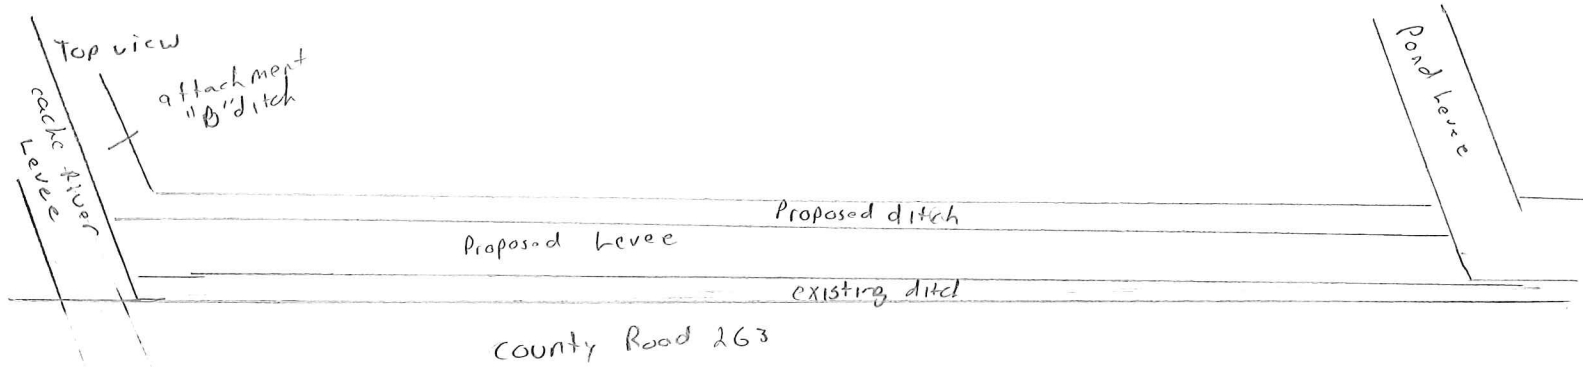 Top view
attachment
"B" ditch
Cache River
Levee
Pond Levee
Proposed ditch
Proposed Levee
existing ditch
County Road 263